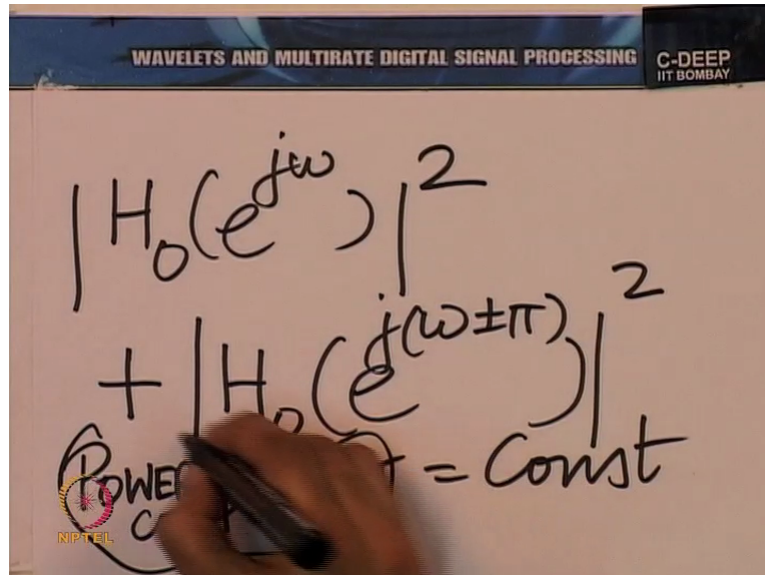 WAVELETS AND MULTIRATE DIGITAL SIGNAL PROCESSING
C-DEEP
IIT BOMBAY
|H₀(e^{jω})|²
+ |H₀(e^{j(ω±π)})|²
= Const
NPTEL